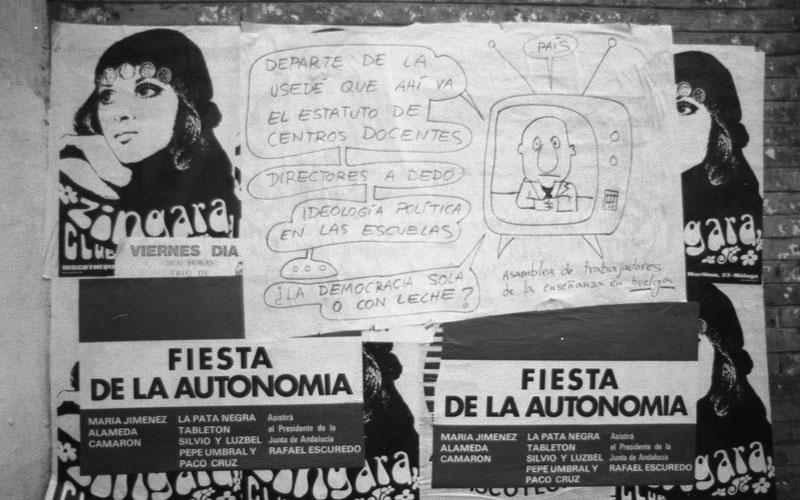 PAÍS
DEPARTE DE LA
USEDÉ QUE AHÍ VA
EL ESTATUTO DE
CENTROS DOCENTES
DIRECTORES A DEDO
IDEOLOGÍA POLÍTICA
EN LAS ESCUELAS
¿LA DEMOCRACIA SOLA
O CON LECHE?
Asamblea de trabajadores
de la enseñanza en huelga
Zingara
CLUB
VIERNES DIA
DISCOTHEQU
TRIO DE
gara
Marítima, 27-Málaga
FIESTA
DE LA AUTONOMIA
MARIA JIMENEZ
ALAMEDA
CAMARON
LA PATA NEGRA
TABLETON
SILVIO Y LUZBEL
PEPE UMBRAL Y
PACO CRUZ
Asistirá
el Presidente de la
Junta de Andalucía
RAFAEL ESCUREDO
FIESTA
DE LA AUTONOMIA
MARIA JIMENEZ
ALAMEDA
CAMARON
LA PATA NEGRA
TABLETON
SILVIO Y LUZBEL
PEPE UMBRAL Y
PACO CRUZ
Asistirá
el Presidente de la
Junta de Andalucía
RAFAEL ESCUREDO